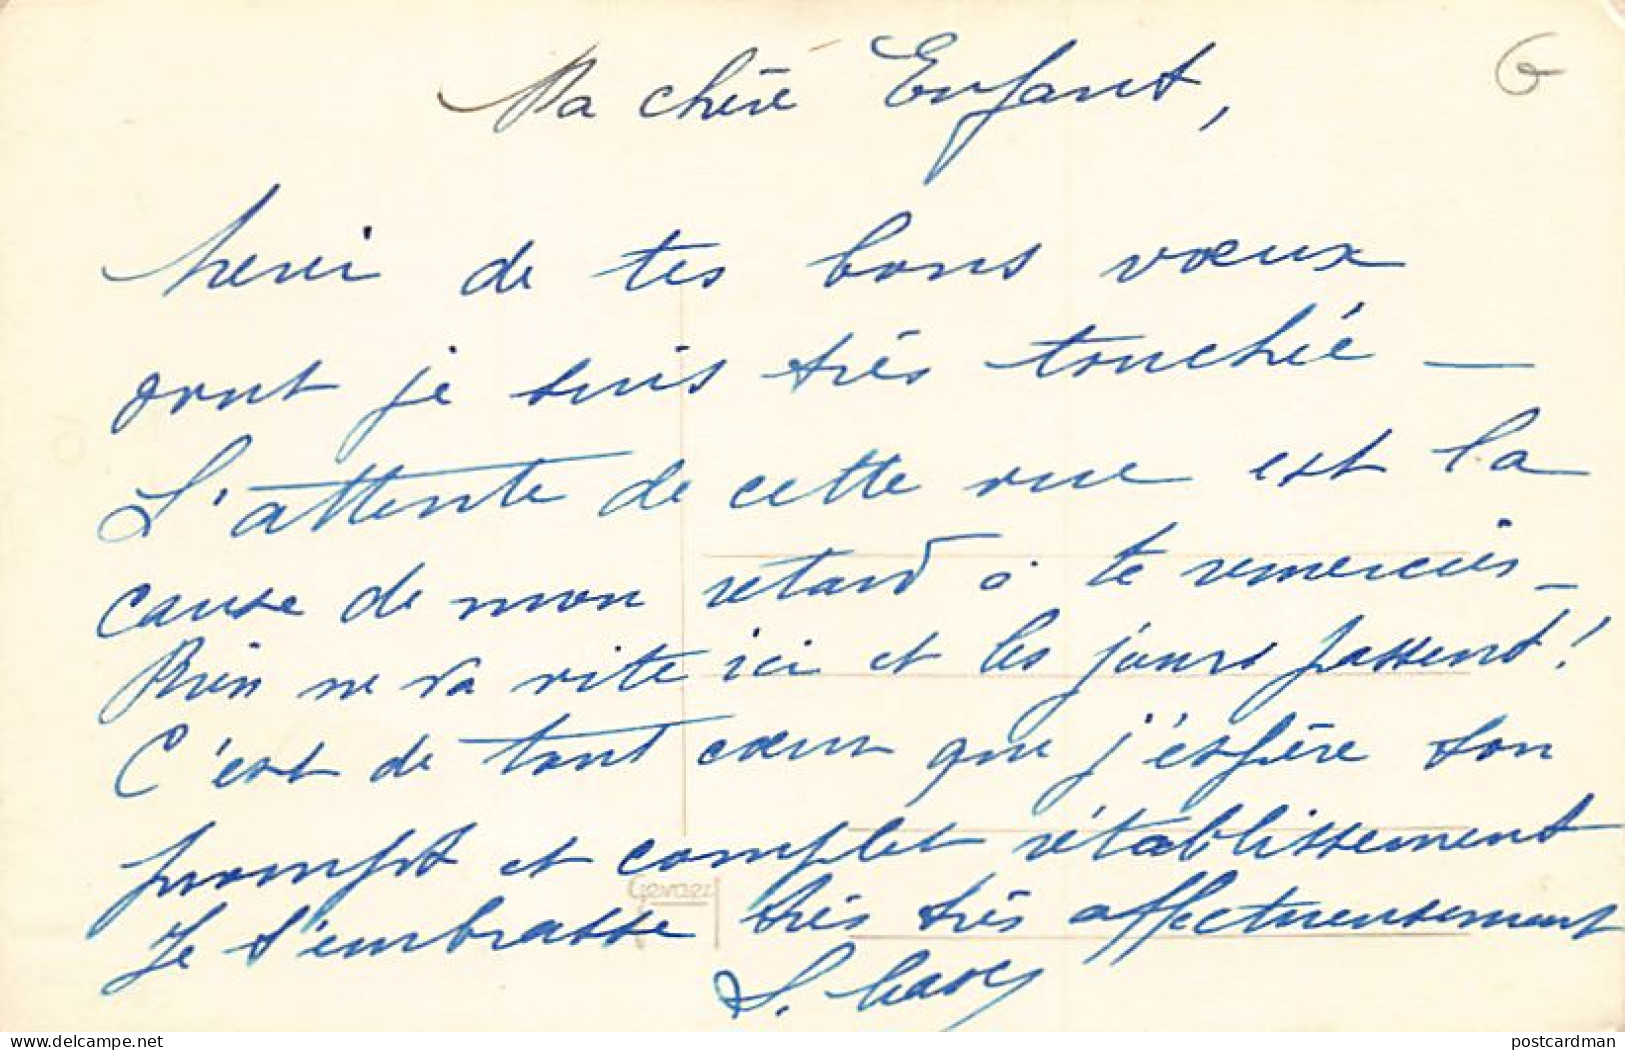 Ma chère Enfant,
Merci de tes bons vœux
dont je suis très touchée —
L'attente de cette vue est la
cause de mon retard à te remercier —
Rien ne va vite ici et les jours passent !
C'est de tout cœur que j'espère ton
prompt et complet rétablissement
Je t'embrasse très très affectueusement
Gevaert
delcampe.net
postcardman